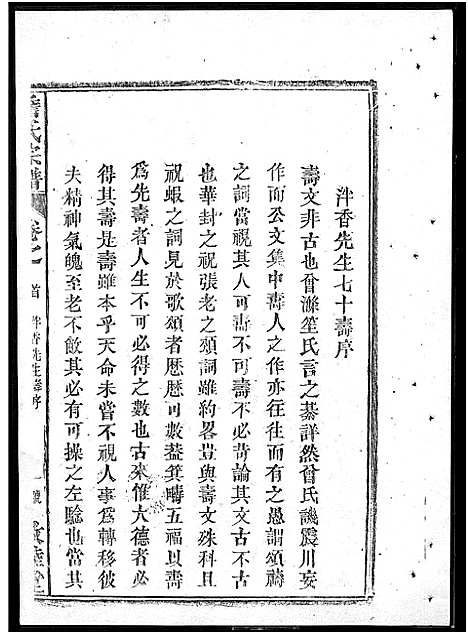 泮香先生七十壽序
壽文非古也曾滌笙氏言之綦詳然曾氏譏震川妄
作而公文集中壽人之作亦往往而有之愚謂頌禱
之詞當視其人可壽不可壽不必苛論其文古不古
也華封之祝張老之頌詞雖約畧豈與壽文殊科且
祝嘏之詞見於歌頌者歷歷可數葢箕疇五福以壽
爲先壽者人生不可必得之數也古來惟大德者必
得其壽是壽雖本乎天命未嘗不視人事爲轉移彼
夫精神氣魄至老不飲其必有可操之左騐也當其
氏宗譜
卷之
首
泮香先生壽序
一號